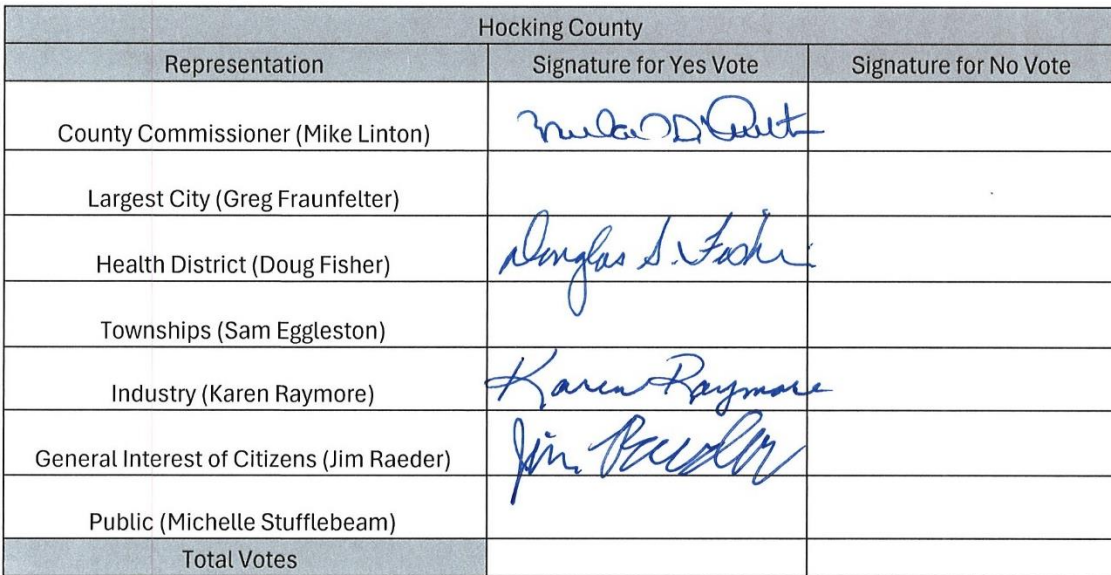 Hocking County
Representation Signature for Yes Vote Signature for No Vote
County Commissioner (Mike Linton)
Largest City (Greg Fraunfelter)
Health District (Doug Fisher) Douglas S. Fisher
Townships (Sam Eggleston)
Industry (Karen Raymore) Karen Raymore
General Interest of Citizens (Jim Raeder) Jim Raeder
Public (Michelle Stufflebeam)
Total Votes